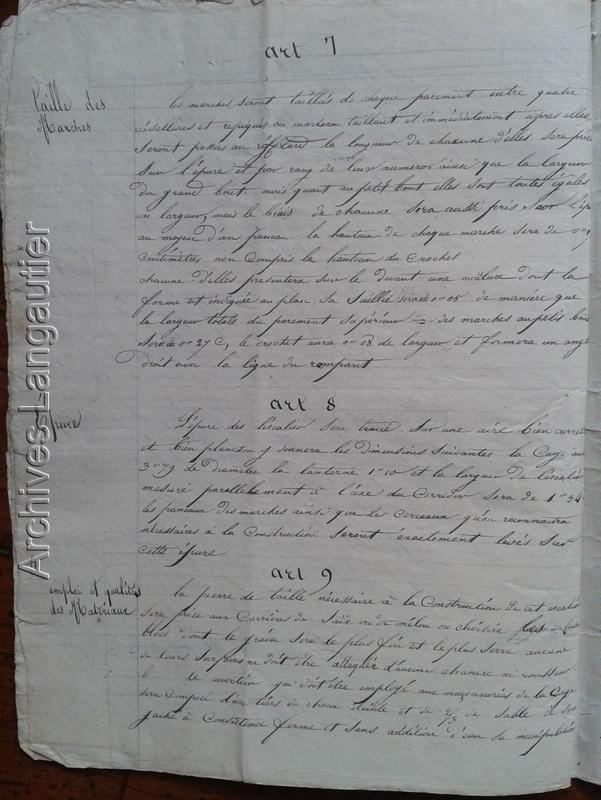 art 7
Taille des
Marches
les marches seront taillées de chaque parement entre quatre
ciselures et repiquées au marteau taillant et immédiatement apres elles
seront passées au la longueur de chacune d'elles sera prise
sur l'épure et par rang de leur numeros ainsi que la largeur
du grand bout mais quant au petit bout elles sont toutes égales
en largeur, mais le biais de chacune sera aussi pris sur l'épure
au moyen d'un paneau la hauteur de chaque marche sera de
Centimètres non compris la hauteur du Crochet
chacune d'elles presentera sur le devant une moulure dont la
forme est indiquée au plan, sa Saillie sera de 0m 05 de manière que
la largeur totale du parement Supérieur des marches au petit bout
Sera de 0m 27 C, le crochet aura 0m 08 de largeur et formera un angle
Droit avec la ligne du rampant
art 8
Epure
L'épure des l'éscalier Sera tracée Sur une aire bien carrelée
et bien plane on y donnera les Dimensions Suivantes la Cage aura
3m 79 de Diametre la lanterne 1m 10 et la largeur de l'escalier
mesuré parallelement à l'axe du Corridor Sera de 1m 34
les paneaux des marches ainsi que les Cerceaux qu'on reconnaitra
nécessaires à la Construction Seront éxactement levés Sur
Cette épure
art 9
emploi et qualités
des Matériaux
la pierre de taille nécessaire à la Construction de cet escalier
Sera prise aux Carrières de ou de on choisira les
blocs dont le grain Sera le plus fin et le plus Serré aucune
de leurs Surfaces ne doit être attaquée d'aucun ni
le mortier qui doit être employé aux maçonneries de la Cage
Sera Composé d'un tiers de chaux éteinte et de 2/3 de Sable il Sera
gaché à Consistence ferme et Sans addition d'eau Sa manipulation
Archives-Langautier